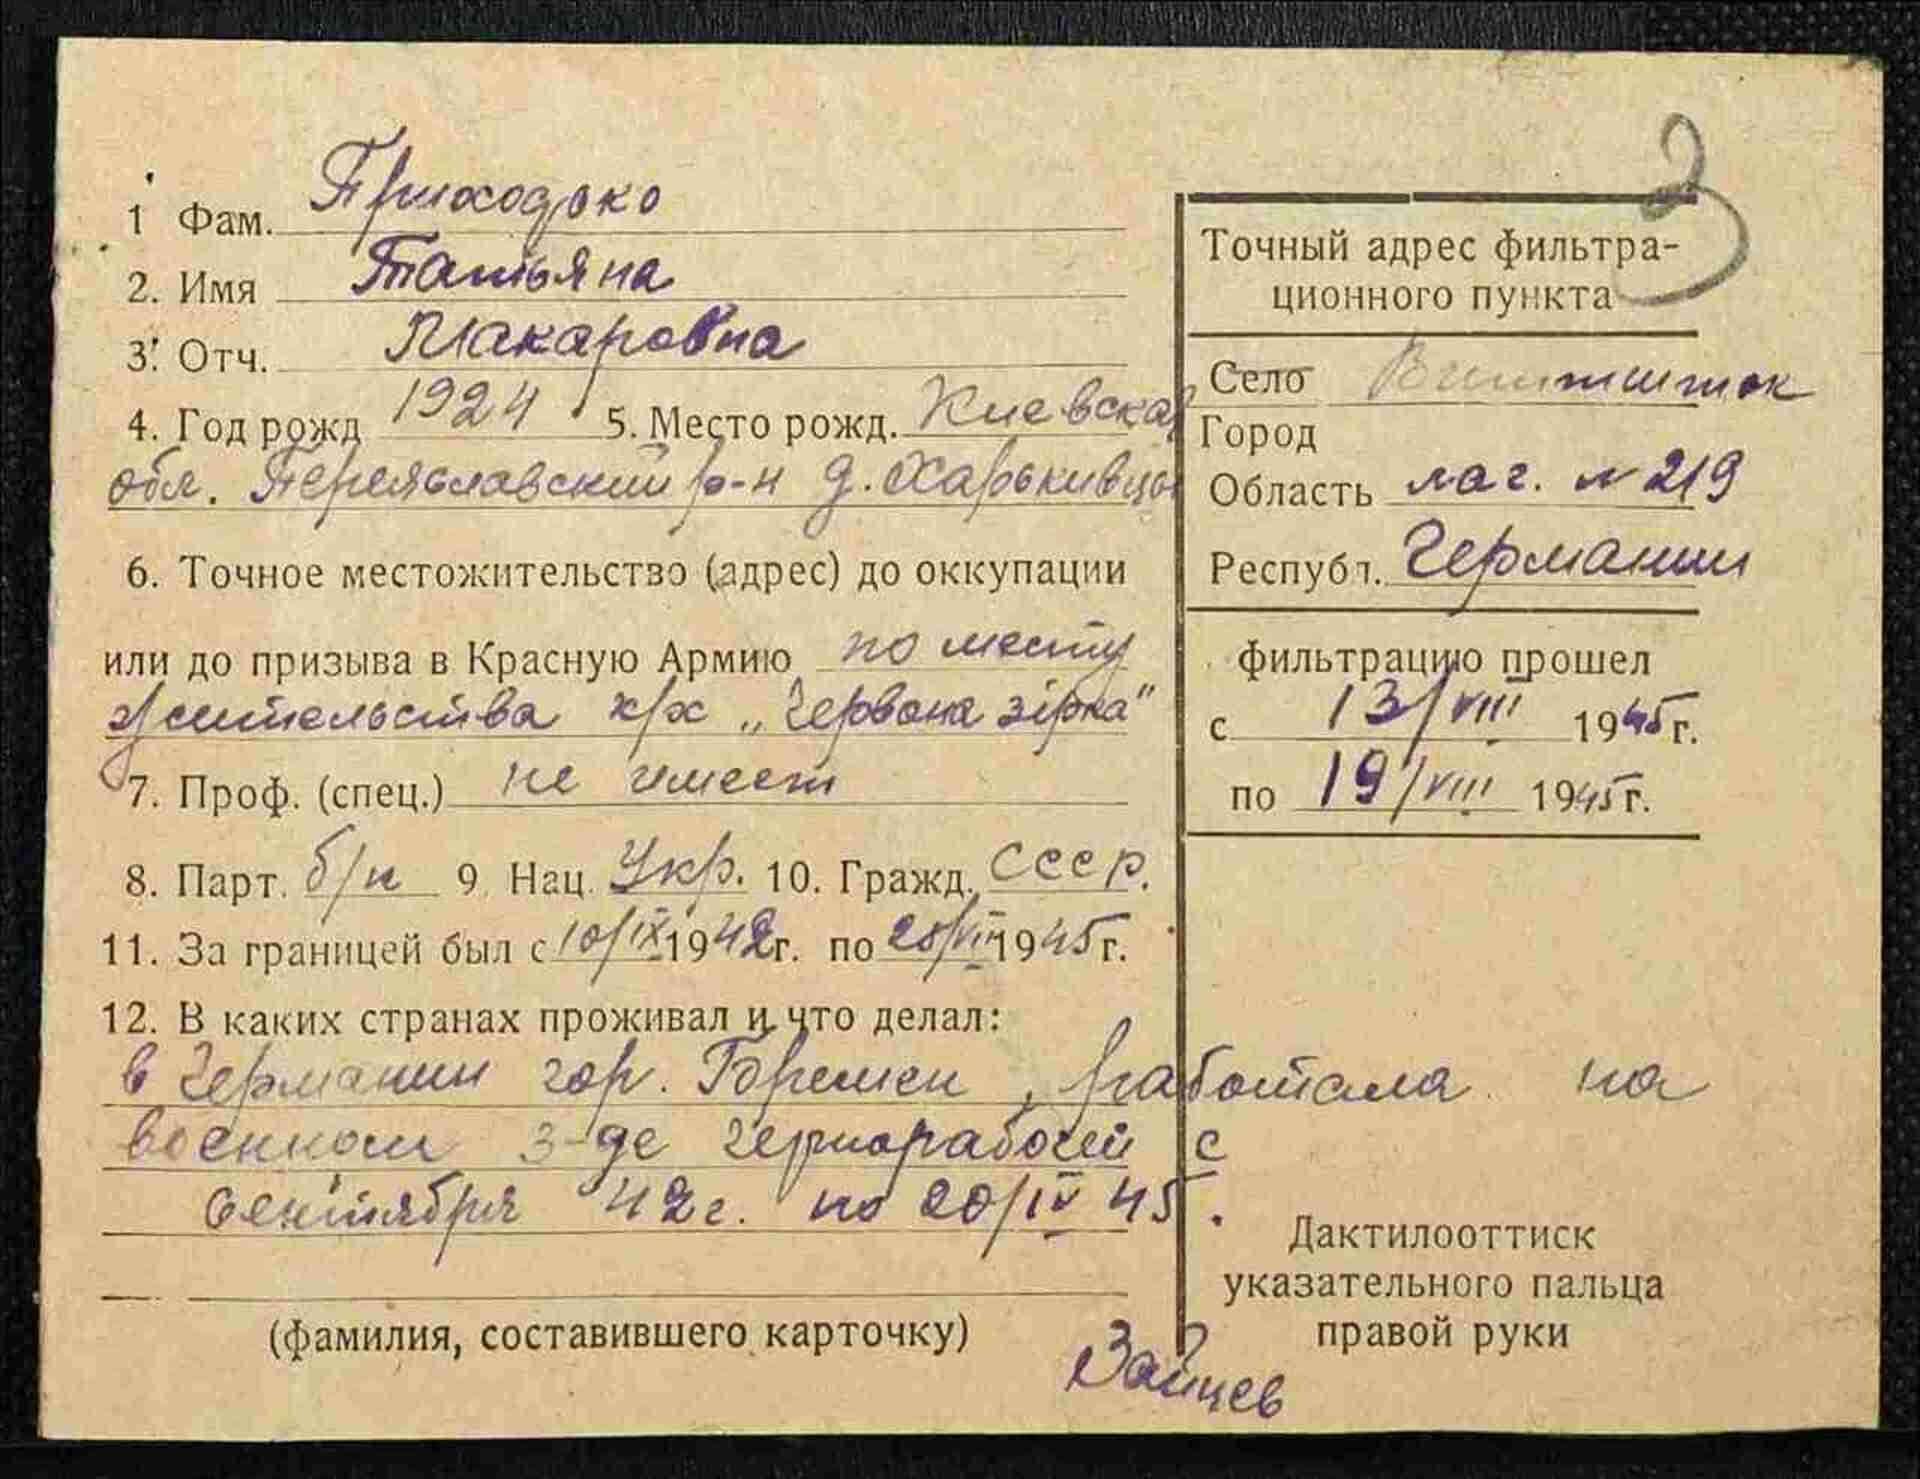 3
1 Фам. Приходько
2. Имя Татьяна
3. Отч. Макаровна
4. Год рожд 1924 5. Место рожд. Киевская
обл. Переяславский р-н д. Харькивцы
6. Точное местожительство (адрес) до оккупации
или до призыва в Красную Армию по месту
жительства к/х „Червона зірка"
7. Проф. (спец.) не имеет
8. Парт. б/п 9. Нац. Укр. 10. Гражд. СССР.
11. За границей был с 10/IX 1942г. по 1945г.
12. В каких странах проживал и что делал:
в Германии гор. Бремен, работала на
военном з-де чернорабочей с
Сентября 42г. по 20/IV 45.
(фамилия, составившего карточку)
Зайцев
Точный адрес фильтра-
ционного пункта
Село Витшток
Город
Область лаг. N 219
Республ. Германии
фильтрацию прошел
с 13/VIII 1945г.
по 19/VIII 1945г.
Дактилооттиск
указательного пальца
правой руки